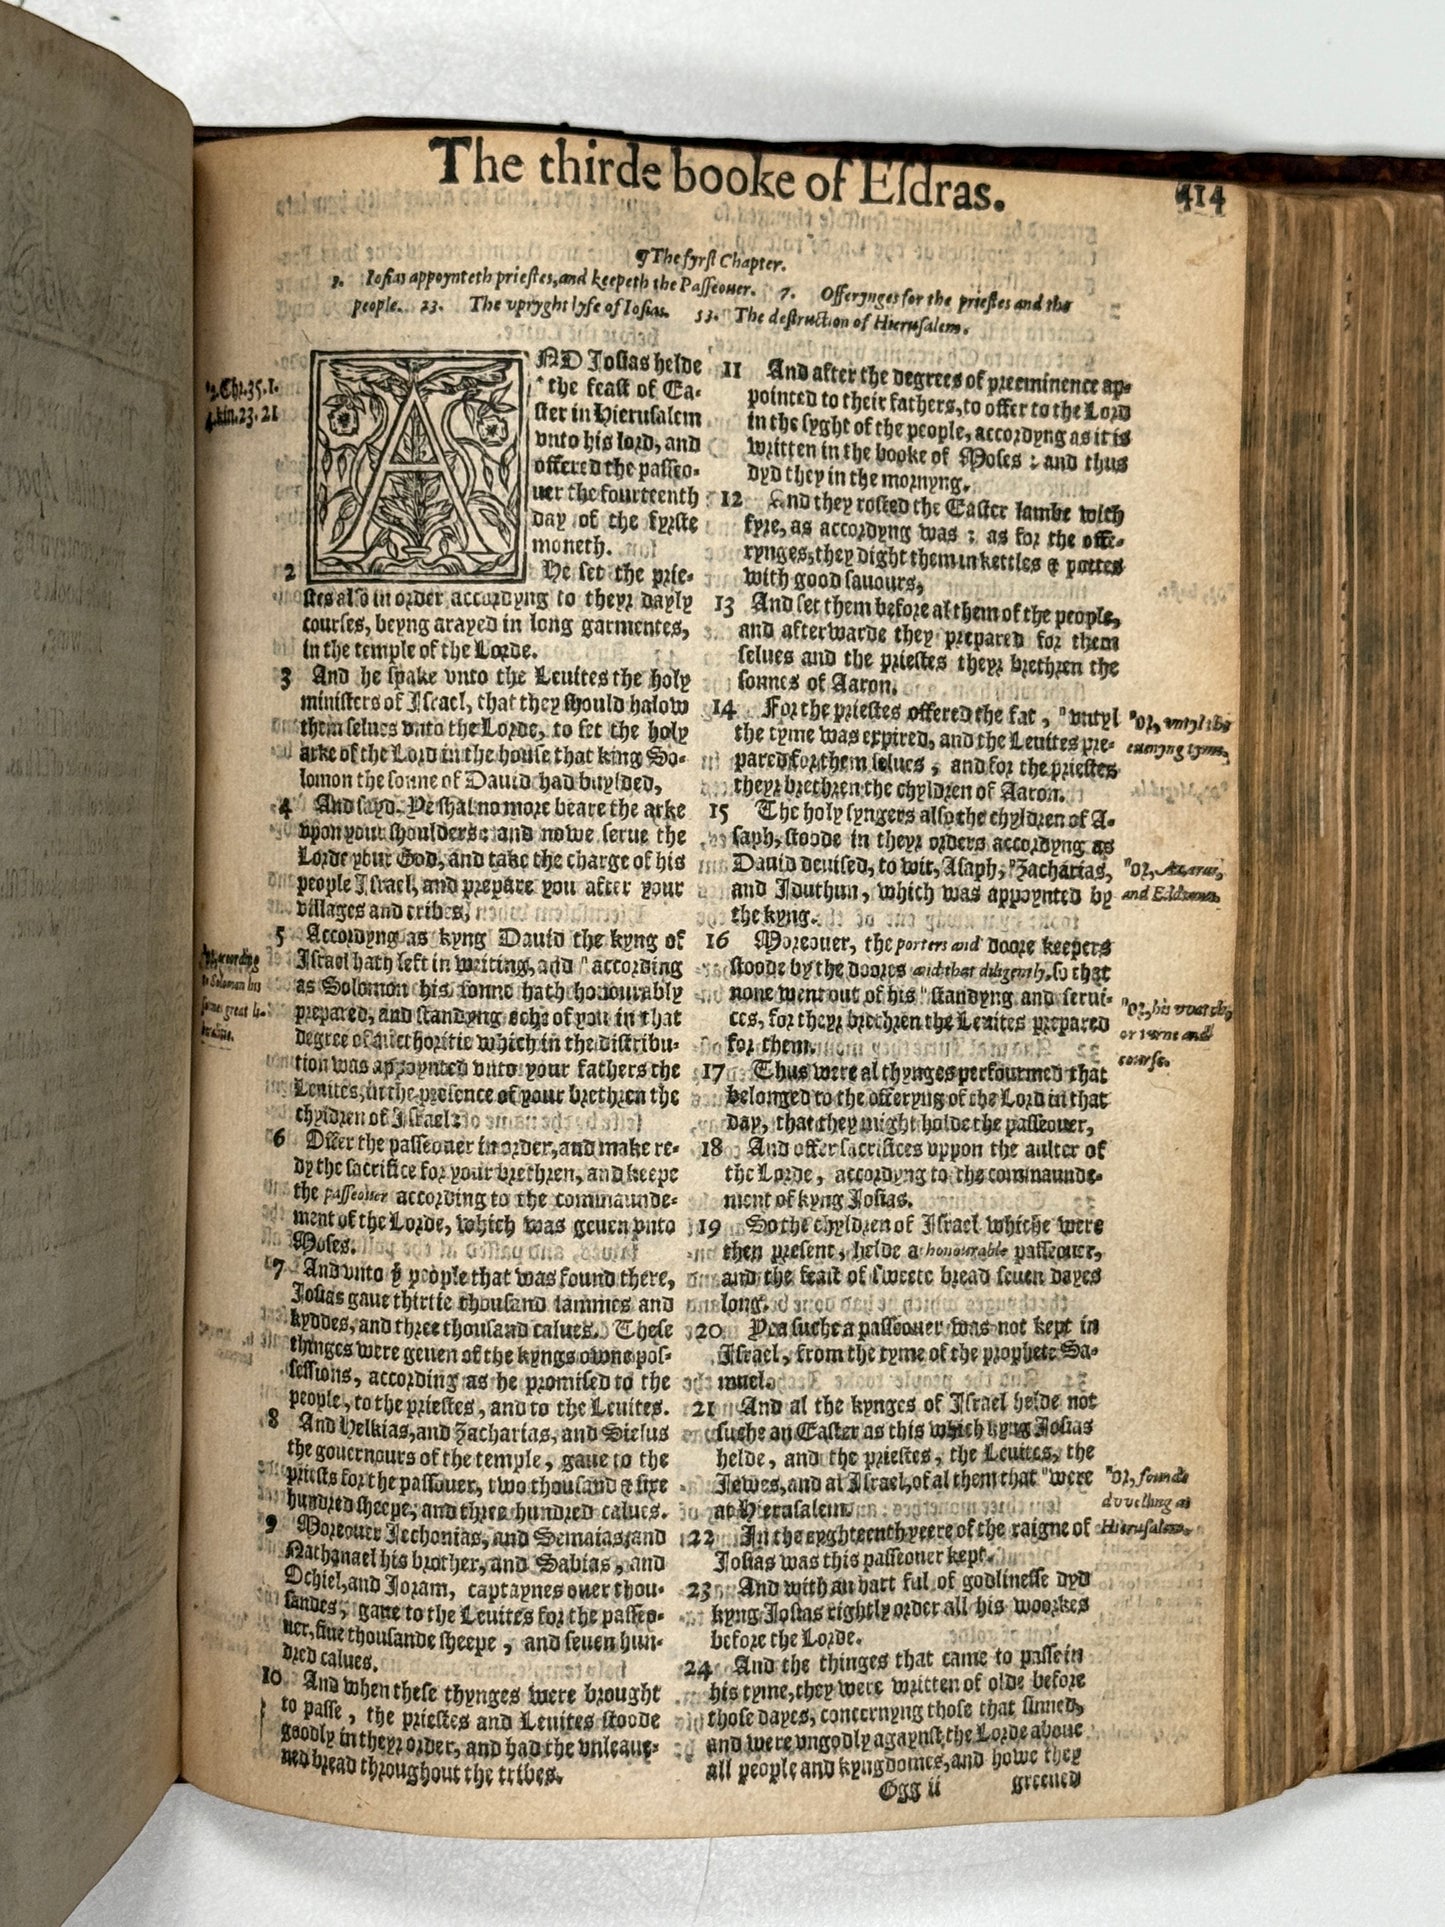 The thirde booke of Eſdras.
414
¶ The fyrſt Chapter.
1. Ioſias appoynteth prieſtes, and keepeth the Paſſeouer. 7. Offerynges for the prieſtes and the
people. 23. The vpryght lyfe of Ioſias. 53. The deſtruction of Hieruſalem.
2.Chr.35.1.
4.kin.23.21
AND Joſias helde
the feaſt of Ea-
ſter in Hieruſalem
vnto his lord, and
offered the paſſeo-
uer the fourteenth
day of the fyrſte
moneth.
2 He ſet the prie-
ſtes alſo in order accordyng to theyr dayly
courſes, beyng arayed in long garmentes,
in the temple of the Lorde.
3 And he ſpake vnto the Leuites the holy
miniſters of Iſrael, that they ſhould halow
them ſelues vnto the Lorde, to ſet the holy
arke of the Lord in the houſe that king So-
lomon the ſonne of Dauid had buylded,
4 And ſayd. Ye ſhal no more beare the arke
vpon your ſhoulders: and nowe ſerue the
Lorde your God, and take the charge of his
people Iſrael, and prepare you after your
villages and tribes,
5 Accordyng as kyng Dauid the kyng of
Iſrael hath left in writing, and "according
as Solomon his ſonne hath honourably
prepared, and ſtandyng eche of you in that
degree of aucthoritie which in the diſtribu-
tion was appoynted vnto your fathers the
Leuites, in the preſence of your brethren the
chyldren of Iſrael:
to Solomon his
ſonnes great li-
6 Offer the paſſeouer in order, and make re-
dy the ſacrifice for your brethren, and keepe
the paſſeouer according to the commaunde-
ment of the Lorde, which was geuen vnto
Moſes.
7 And vnto yͤ people that was found there,
Joſias gaue thirtie thouſand lammes and
kyddes, and three thouſand calues. Theſe
thinges were geuen of the kyngs owne poſ-
ſeſſions, according as he promiſed to the
people, to the prieſtes, and to the Leuites.
8 And Helkias, and Zacharias, and Sielus
the gouernours of the temple, gaue to the
prieſts for the paſſouer, two thouſand & ſixe
hundred ſheepe, and three hundred calues.
9 Moreouer Jechonias, and Semaias, and
Nathanael his brother, and Sabias, and
Ochiel, and Joram, captaynes ouer thou-
ſandes, gaue to the Leuites for the paſſeo-
uer, fiue thouſande ſheepe, and ſeuen hun-
dred calues.
10 And when theſe thynges were brought
to paſſe, the prieſtes and Leuites ſtoode
goodly in theyr order, and had the vnleaue-
ned bread throughout the tribes.
11 And after the degrees of preeminence ap-
pointed to their fathers, to offer to the Lord
in the ſyght of the people, accordyng as it is
written in the booke of Moſes: and thus
dyd they in the mornyng.
12 And they roſted the Eaſter lambe with
fyre, as accordyng was: as for the offe-
rynges, they dight them in kettles & pottes
with good ſauours,
13 And ſet them before al them of the people,
and afterwarde they prepared for them
ſelues and the prieſtes theyr brethren the
ſonnes of Aaron.
14 For the prieſtes offered the fat, "vntyl
the tyme was expired, and the Leuites pre-
pared for them ſelues, and for the prieſtes
theyr brethren the chyldren of Aaron.
"Or, vntyl the
euenyng tyme.
15 The holy ſyngers alſo the chyldren of A-
ſaph, ſtoode in theyr orders accordyng as
Dauid deuiſed, to wit, Aſaph, "Zacharias,
and Iduthun, which was appoynted by
the kyng.
"Or, Azarias,
and Eddimus.
16 Moreouer, the porters and doore keepers
ſtoode by the doores and that diligently, ſo that
none went out of his "ſtandyng and ſerui-
ces, for theyr brethren the Leuites prepared
for them.
"Or, his
or turne and
courſe.
17 Thus were al thynges perfourmed that
belonged to the offeryng of the Lord in that
day, that they might holde the paſſeouer,
18 And offer ſacrifices vppon the aulter of
the Lorde, accordyng to the commaunde-
ment of kyng Joſias.
19 So the chyldren of Iſrael whiche were
then preſent, helde a honourable paſſeouer,
and the feaſt of ſweete bread ſeuen dayes
long.
20 Yea ſuche a paſſeouer was not kept in
Iſrael, from the tyme of the prophete Sa-
muel.
21 And al the kynges of Iſrael helde not
ſuche an Eaſter as this which kyng Joſias
helde, and the prieſtes, the Leuites, the
Jewes, and al Iſrael, of al them that "were
at Hieruſalem.
"Or, founde
dwelling at
Hieruſalem.
22 In the eyghteenth yeere of the raigne of
Joſias was this paſſeouer kept.
23 And with an hart ful of godlineſſe dyd
kyng Joſias rightly order all his woorkes
before the Lorde.
24 And the thinges that came to paſſe in
his tyme, they were written of olde before
thoſe dayes, concernyng thoſe that ſinned,
and were vngodly agaynſt the Lorde aboue
all people and kyngdomes, and howe they
Ggg ii
greeued